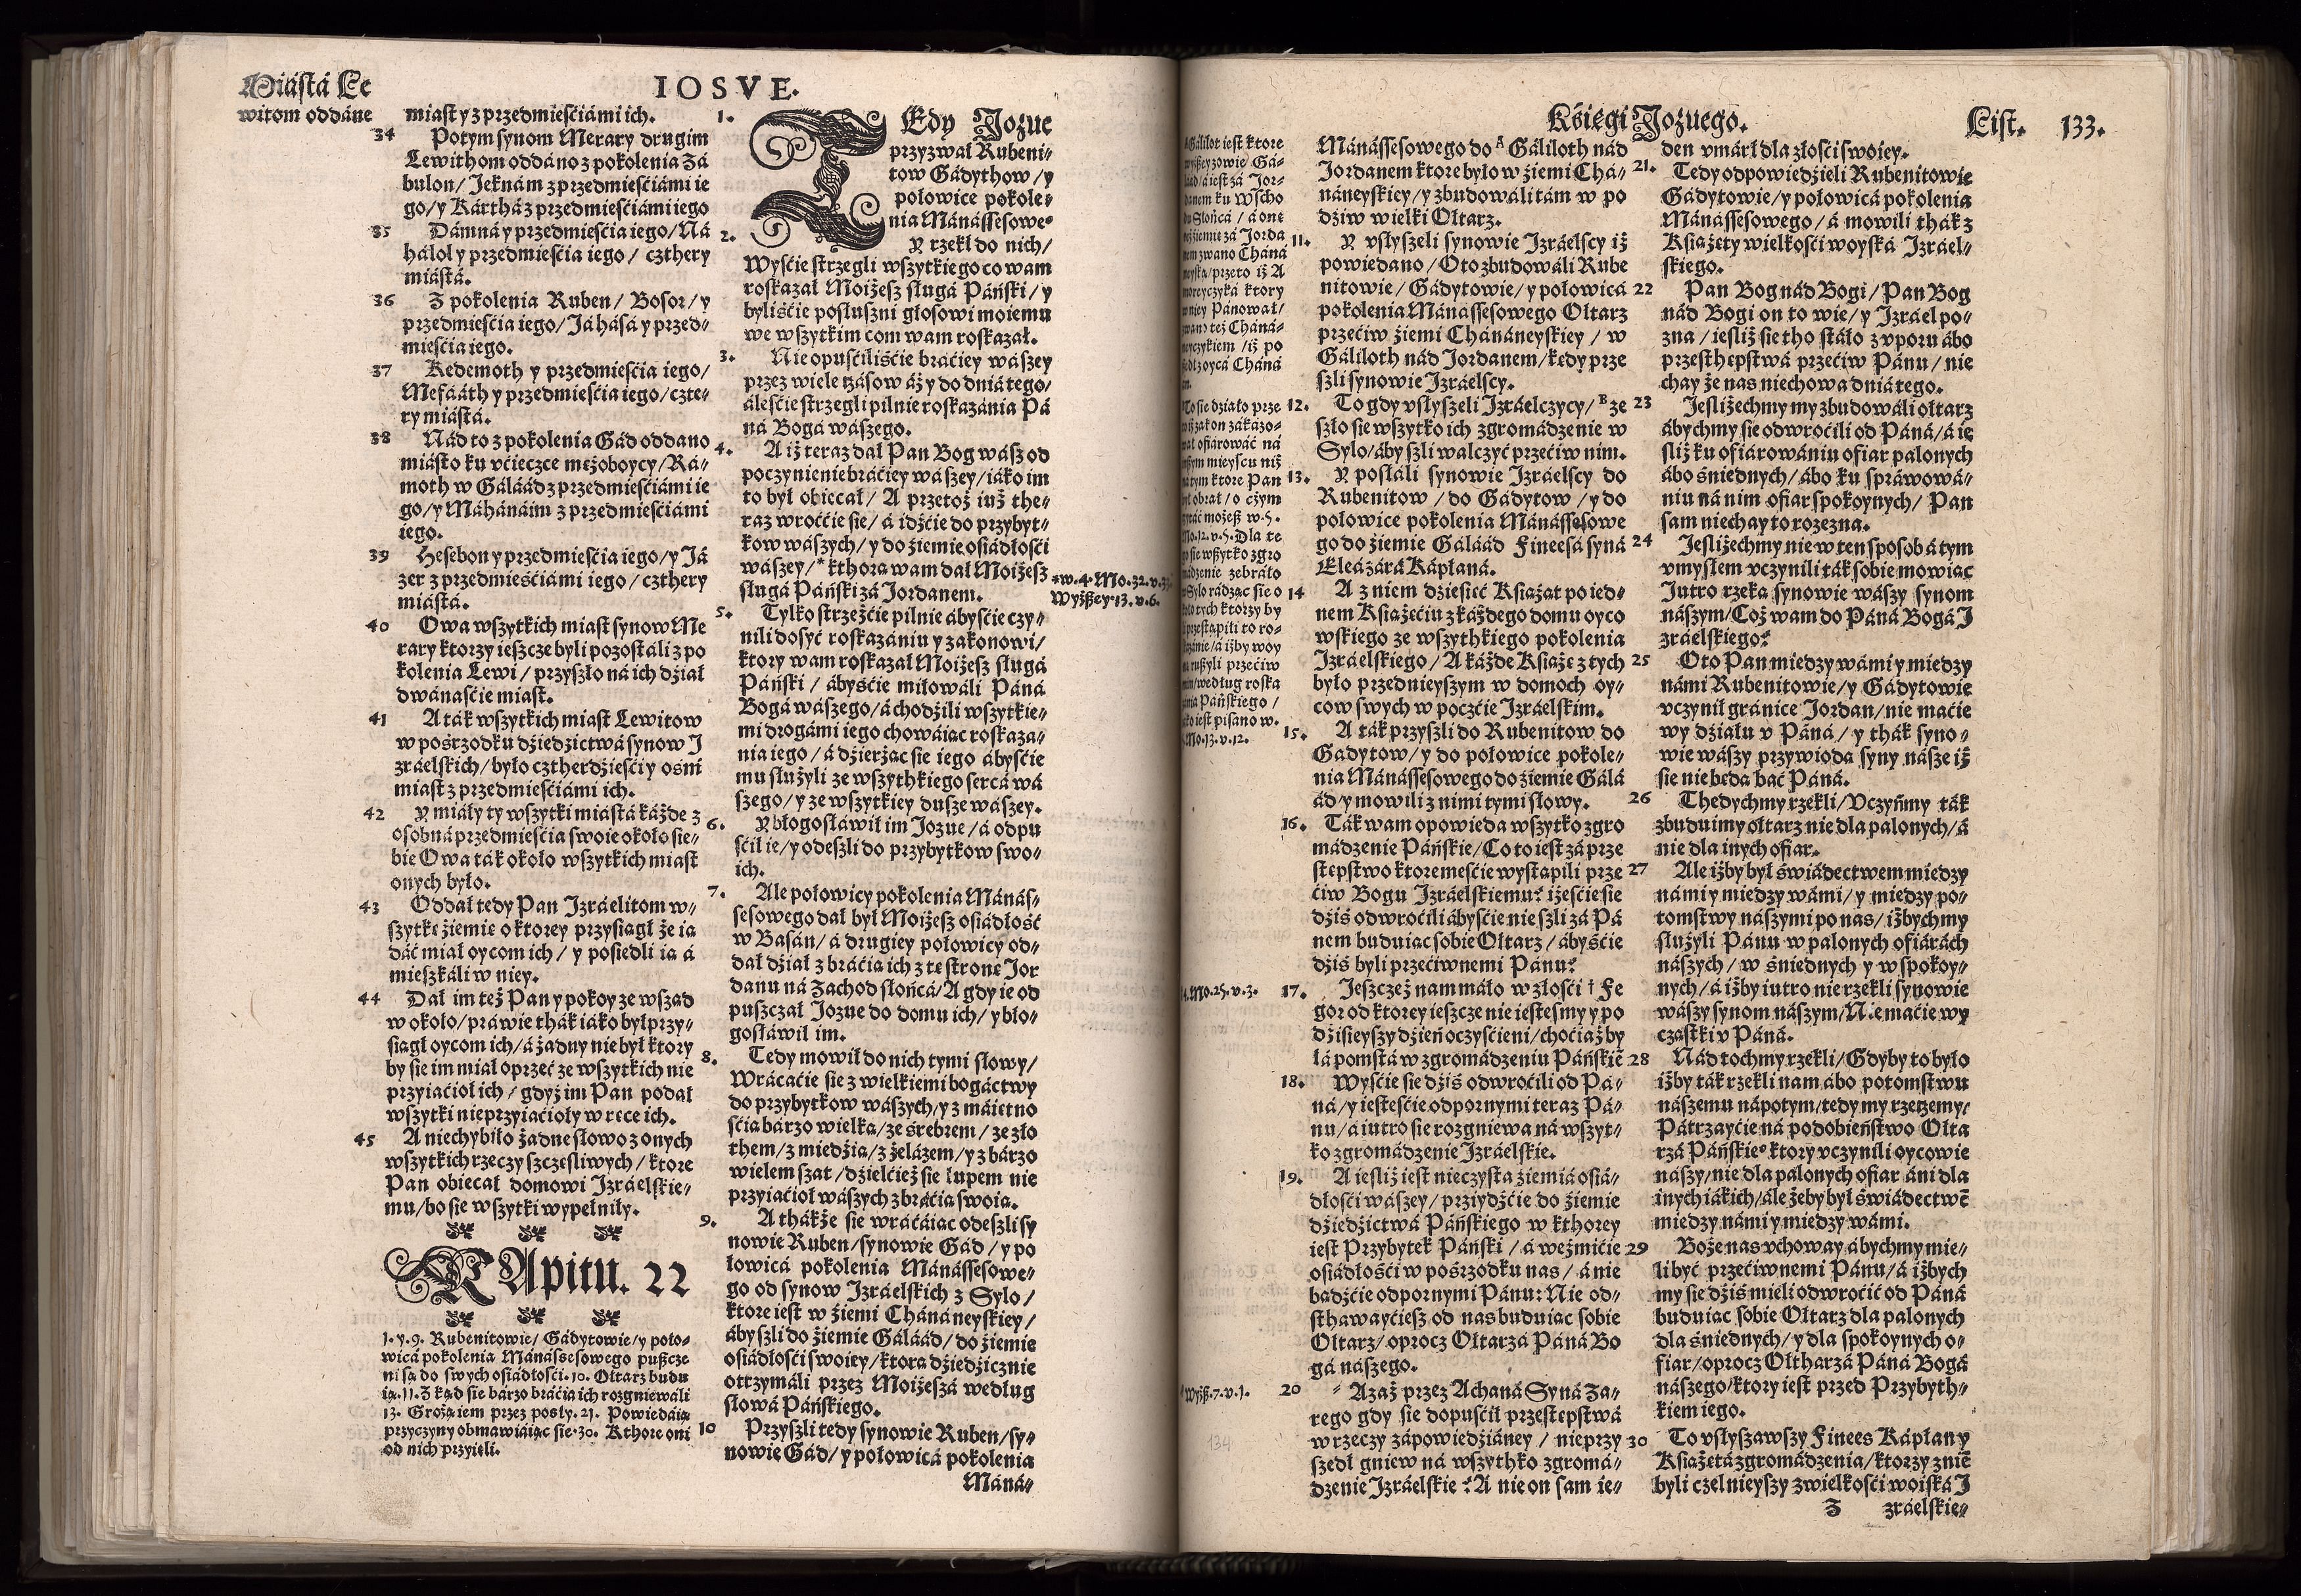 Miástá Le
witom oddáne
IOSVE.
miast y z przedmieśćiámi ich.
34 Potym synom Merary drugim
Lewithom oddano z pokolenia Zá
bulon/ Jeknám z przedmieśćiámi ie
go/ y Kárthá z przedmieśćiámi iego
35 Dámná y przedmieśćia iego/ Ná
hálol y przedmieśćia iego/ czthery
miástá.
36 Z pokolenia Ruben/ Bosor/ y
przedmieśćia iego/ Jáhásá y przed⸗
mieśćia iego.
37 Kedemoth y przedmieśćia iego/
Mefááth y przedmieśćia iego/ czte⸗
ry miástá.
38 Nád to z pokolenia Gád oddano
miásto ku vćieczce mężoboycy/ Rá⸗
moth w Gáláád z przedmieśćiámi ie
go/ y Máhánáim z przedmieśćiámi
iego.
39 Hesebon y przedmieśćia iego/ y Já
zer z przedmieśćiámi iego/ czthery
miástá.
40 Owa wszytkich miast synow Me
rary ktorzy ieszcze byli pozostáli z po
kolenia Lewi/ przyszło ná ich dźiał
dwánaśćie miast.
41 A ták wszytkich miast Lewitow
w pośrzodku dźiedźictwá synow J
zráelskich/ było cztherdźieśći y ośm
miast z przedmieśćiámi ich.
42 Y miáły ty wszytki miástá káżde z
osobná przedmieśćia swoie około sie⸗
bie Owa ták około wszytkich miast
onych było.
43 Oddał tedy Pan Izráelitom w⸗
szytkę źiemię o ktorey przysiągł że ią
dáć miał oycom ich/ y posiedli ią á
mieszkáli w niey.
44 Dał im też Pan y pokoy ze wsząd
w około/ práwie thák iáko był przy⸗
siągł oycom ich/ á żadny nie był ktory
by sie im miał oprzeć ze wszytkich nie
przyiaćioł ich/ gdyż im Pan podał
wszytki nieprzyiaćioły w ręce ich.
45 A niechybiło żadne słowo z onych
wszytkich rzeczy szczęśliwych/ ktore
Pan obiecał domowi Izráelskie⸗
mu/ bo sie wszytki wypełniły.
KApitu. 22
1. y. 9. Rubenitowie/ Gádytowie/ y poło⸗
wicá pokolenia Mánássesowego puszcze
ni są do swych osiádłośći. 10. Ołtarz budu
ią. 11. Z kąd sie bárzo bráćia ich rozgniewáli
13. Grożą iem przez posły. 21. Powiedáią
przyczyny obmawiáiąc sie. 30. Kthore oni
od nich przyięli.
1. TEdy Jozue
przyzwał Rubeni⸗
tow Gádythow/ y
połowice pokole⸗
nia Mánássesowe⸗
2. Y rzekł do nich/
Wyśćie strzegli wszytkiego co wam
roskazał Moiżesz sługá Páński/ y
byliśćie posłuszni głosowi moiemu
we wszytkim com wam roskazał.
3. Nie opuśćiliśćie bráciey wászey
przez wiele czásow áż y do dniá tego/
áleśćie strzegli pilnie roskazánia Pá
ná Bogá wászego.
4. A iż teraz dał Pan Bog wász od
poczynienie bráćiey wászey/ iáko im
to był obiecał/ A przetoż iuż the⸗
raz wroććie sie/ á idźćie do przybyt⸗
kow wászych/ y do źiemie osiádłośći
wászey/ * kthorą wam dał Moiżesz
sługá Páński zá Jordanem.
* w. 4. Mo. 32. v. 33.
Wyższey. 13. v. 6.
5. Tylko strzeżćie pilnie ábyśćie czy⸗
nili dosyć roskazániu y zakonowi/
ktory wam roskazał Moiżesz sługá
Páński/ ábyśćie miłowáli Páná
Bogá wászego/ á chodźili wszytkie⸗
mi drogámi iego chowáiąc roskaza⸗
nia iego/ á dźierżąc sie iego ábyśćie
mu służyli ze wszythkiego sercá wá
szego/ y ze wszytkiey dusze wászey.
6. Y błogosłáwił im Jozue/ á odpu
śćił ie/ y odeszli do przybytkow swo⸗
ich.
7. Ale połowicy pokolenia Mánás⸗
sesowego dał był Moiżesz osiádłość
w Básán/ á drugiey połowicy od⸗
dał dźiał z bráćią ich z tę stronę Jor
danu ná Zachod słońcá/ A gdy ie od
puszczał Jozue do domu ich/ y bło⸗
gosłáwił im.
8. Tedy mowił do nich tymi słowy/
Wrácaćie sie z wielkiemi bogáctwy
do przybytkow wászych/ y z máiętno
śćią bárzo wielką/ ze śrebrem/ ze zło
them/ z miedźią/ z żelázem/ y z bárzo
wielem szat/ dźielćież sie łupem nie
przyiaćioł wászych z bráćią swoią.
9. A thákże sie wráćáiąc odeszli sy
nowie Ruben/ synowie Gád/ y po
łowicá pokolenia Mánássesowe⸗
go od synow Izráelskich z Sylo/
ktore iest w źiemi Chánáneyskiey/
áby szli do źiemie Gáláád/ do źiemie
osiádłośći swoiey/ ktorą dźiedźicznie
otrzymáli przez Moiżeszá według
słowá Páńskiego.
10 Przyszli tedy synowie Ruben/ sy⸗
nowie Gád/ y połowicá pokolenia
Máná⸗
Księgi Jozuego.
List. 133.
A Gálilot iest ktore
Mánássesowego do A Gáliloth nád
Jordanem ktore było w źiemi Chá⸗
náneyskiey/ y zbudowáli tám w po
dźiw wielki Ołtarz.
11. Y vsłyszeli synowie Izráelscy iż
powiedano/ Oto zbudowáli Rube
nitowie/ Gádytowie/ y połowicá
pokolenia Mánássesowego Ołtarz
przećiw źiemi Chánáneyskiey/ w
Gáliloth nád Jordanem/ kędy prze
szli synowie Izráelscy.
12. To gdy vsłyszeli Izráelczycy/ B ze
szło sie wszytko ich zgromádzenie w
Sylo/ áby szli walczyć przećiw nim.
13. Y posłáli synowie Izráelscy do
Rubenitow/ do Gádytow/ y do
połowice pokolenia Mánássesowe
go do źiemie Gáláád Fineesá syná
Eleázárá Kápłaná.
14 A z niem dźiesięć Kśiążat po ied⸗
nem Kśiążęćiu z káżdego domu oyco
wskiego ze wszythkiego pokolenia
Izráelskiego/ A káżde Kśiążę z tych
było przednieyszym w domoch oy⸗
cow swych w poczćie Izráelskim.
15. A ták przyszli do Rubenitow do
Gadytow/ y do połowice pokole⸗
nia Mánássesowego do źiemie Gálá
ád y mowili z nimi tymi słowy.
16. Ták wam opowieda wszytko zgro
mádzenie Páńskie/ Co to iest zá prze
stępstwo ktoremeśćie wystąpili prze
ćiw Bogu Izráelskiemu? iżeśćie sie
dźiś odwroćili ábyśćie nie szli zá Pá
nem buduiąc sobie Ołtarz/ ábyśćie
dźiś byli przećiwnemi Pánu?
4. Mo. 25. v. 3.
17. Jeszczeż nam máło w złośći † Fe
gor od ktorey ieszcze nie iestesmy y po
dźisieyszy dźień oczyśćieni/ choćiaż by
łá pomstá w zgromádzeniu Páńskiē
18. Wyśćie sie dźiś odwroćili od Pá⸗
ná/ y iesteśćie odpornymi teraz Pá⸗
nu/ á iutro sie rozgniewa ná wszyt⸗
ko zgromádzenie Izráelskie.
19. A iesliż iest nieczysta źiemiá osiá⸗
dłośći wászey/ przydźćie do źiemie
dźiedźictwá Páńskiego w kthorey
iest Przybytek Páński/ á weźmićie
osiádłośći w pośrzodku nas/ á nie
bądźćie odpornymi Pánu: Nie od⸗
sthawayćiesz od nas buduiąc sobie
Ołtarz/ oprocz Ołtarzá Páná Bo
gá nászego.
Wyższ. 7. v. 1.
20 Azaż przez Acháná Syná Zá⸗
rego gdy sie dopuśćił przestępstwá
w rzeczy zápowiedźiáney/ nie przy
szedł gniew ná wszythko zgromá⸗
dzenie Izráelskie? A nie on sam ie⸗
den vmárł dla złośći swoiey.
21. Tedy odpowiedźieli Rubenitowie
Gádytowie/ y połowicá pokolenia
Mánássesowego/ á mowili thák z
Kśiążęty wielkośći woyská Izráel⸗
skiego.
22 Pan Bog nád Bogi/ Pan Bog
nád Bogi on to wie/ y Izráel po⸗
zna/ iesliż sie tho stáło z vporu ábo
przesthępstwá przećiw Pánu/ nie
chay że nas nie chowa dniá tego.
23 Jesliżechmy my zbudowáli ołtarz
ábychmy sie odwroćili od Páná/ á ie
sliż ku ofiárowániu ofiar palonych
ábo śniednych/ ábo ku spráwowá⸗
niu ná nim ofiar spokoynych/ Pan
sam niechay to rozezna.
24 Jesliżechmy nie w ten sposob á tym
vmysłem vczynili ták sobie mowiąc
Jutro rzeką synowie wászy synom
nászym/ Coż wam do Páná Bogá J
zráelskiego?
25 Oto Pan miedzy wámi y miedzy
námi Rubenitowie/ y Gádytowie
vczynił gránice Jordan/ nie maćie
wy dźiału v Páná/ y thák syno⸗
wie wászy przywiodą syny násze iż
sie nie będą bać Páná.
26 Thedychmy rzekli/ Vczyńmy ták
zbuduimy ołtarz nie dla palonych/ á
nie dla inych ofiar.
27 Ale iżby był świádectwem miedzy
námi y miedzy wámi/ y miedzy po⸗
tomstwy nászymi po nas/ iżbychmy
służyli Pánu w palonych ofiárách
nászych/ w śniednych y w spokoy⸗
nych/ á iżby iutro nie rzekli synowie
wászy synom nászym/ Nie maćie wy
cząstki v Páná.
28 Nád tochmy rzekli/ Gdyby to było
iżby ták rzekli nam ábo potomstwu
nászemu nápotym/ tedy my rzeczemy⸗
Pátrzayćie ná podobieństwo Ołta
rzá Páńskie⸗ ktory vczynili oycowie
nászy/ nie dla palonych ofiar áni dla
inych iákich/ ále żeby był świádectwē
miedzy námi y miedzy wámi.
29 Boże nas vchoway ábychmy mie⸗
li być przećiwnemi Pánu/ á iżbych
my sie dźiś mieli odwroćić od Páná
buduiąc sobie Ołtarz dla palonych
dla śniednych/ y dla spokoynych o⸗
fiar/ oprocz Ołtharzá Páná Bogá
nászego/ ktory iest przed Przybyth⸗
kiem iego.
30 To vsłyszawszy Finees Kápłan y
Kśiążętá zgromádzenia/ ktorzy z niē
byli czelnieyszy z wielkośći woiská J
Z zráelskie⸗
134